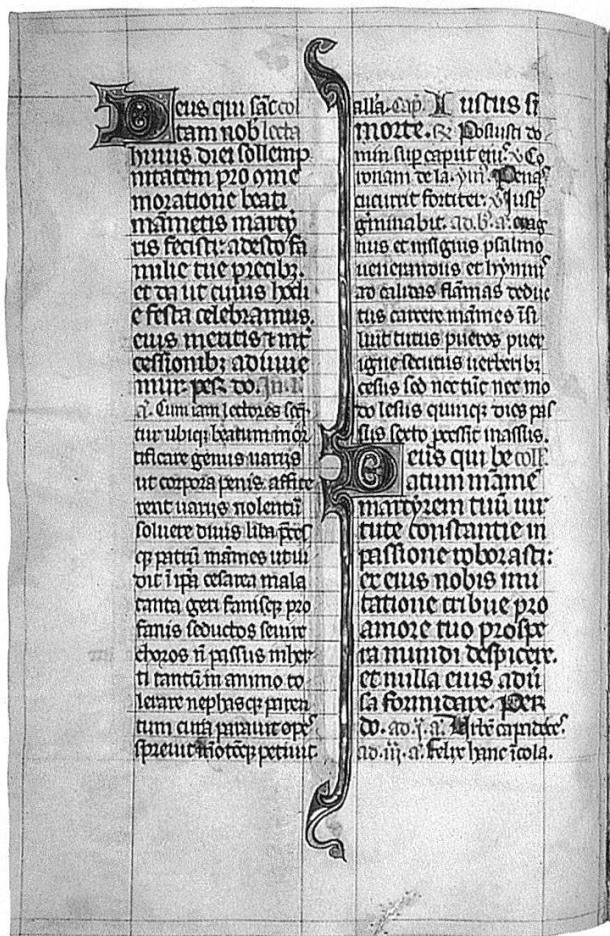 Deus qui sāc col
tam nob lecta
huius diei sollemp
nitatem pro ɔme
moratione beati
māmetis marty
ris fecisti: adesto fa
milie tue precibꝫ.
et da ut cuius hodi
e festa celebramus.
eius meritis ⁊ int̄
cessionibꝫ adiuue
mur. per. do. In
a. Cum iam lectores
tur ubiqꝫ beatum mor
tificare genus uariis
ut corpora penis affice
rent uariis nolentū
soluere diuis liba p̄ces
qꝫ patriū māmes ut ui
dit ī ip̄a cesarea mala
tanta geri fanisqꝫ pro
fanis seductos seuire
choros n̄ passus iniher
ti tantū in animo to
lerare nephas qꝫ paren
tum cūcta parauit opes
spreuit qꝫ petiuit
alla. Cap. Iustus si
morte. ℟ Posuisti do
min sup caput eiꝰ. ℣ Co
ronam de la.
cucurrit fortiter. ℣ Just
gminabit. ad. b. a. mag
nus et insignis psalmo
uenerandus et hymnis
ad calidas flāmas deduc
tus carcere māmes ī si
luit tutus pueros puer
igne secutus uerberibꝫ
cesus sed nec tūc nec mo
do lesus quinqꝫ dies pas
sus sexto pcessit inassus.
Deus qui be coll
atum māme
martyrem tuū uir
tute constantie in
passione roborasti:
ex eius nobis imi
tatione tribue pro
amore tuo prospe
ra mundi despicere.
et nulla eius aduer
sa formidare. Per
do. ad. i. a.
ad. iii. a. felix hanc īcola.